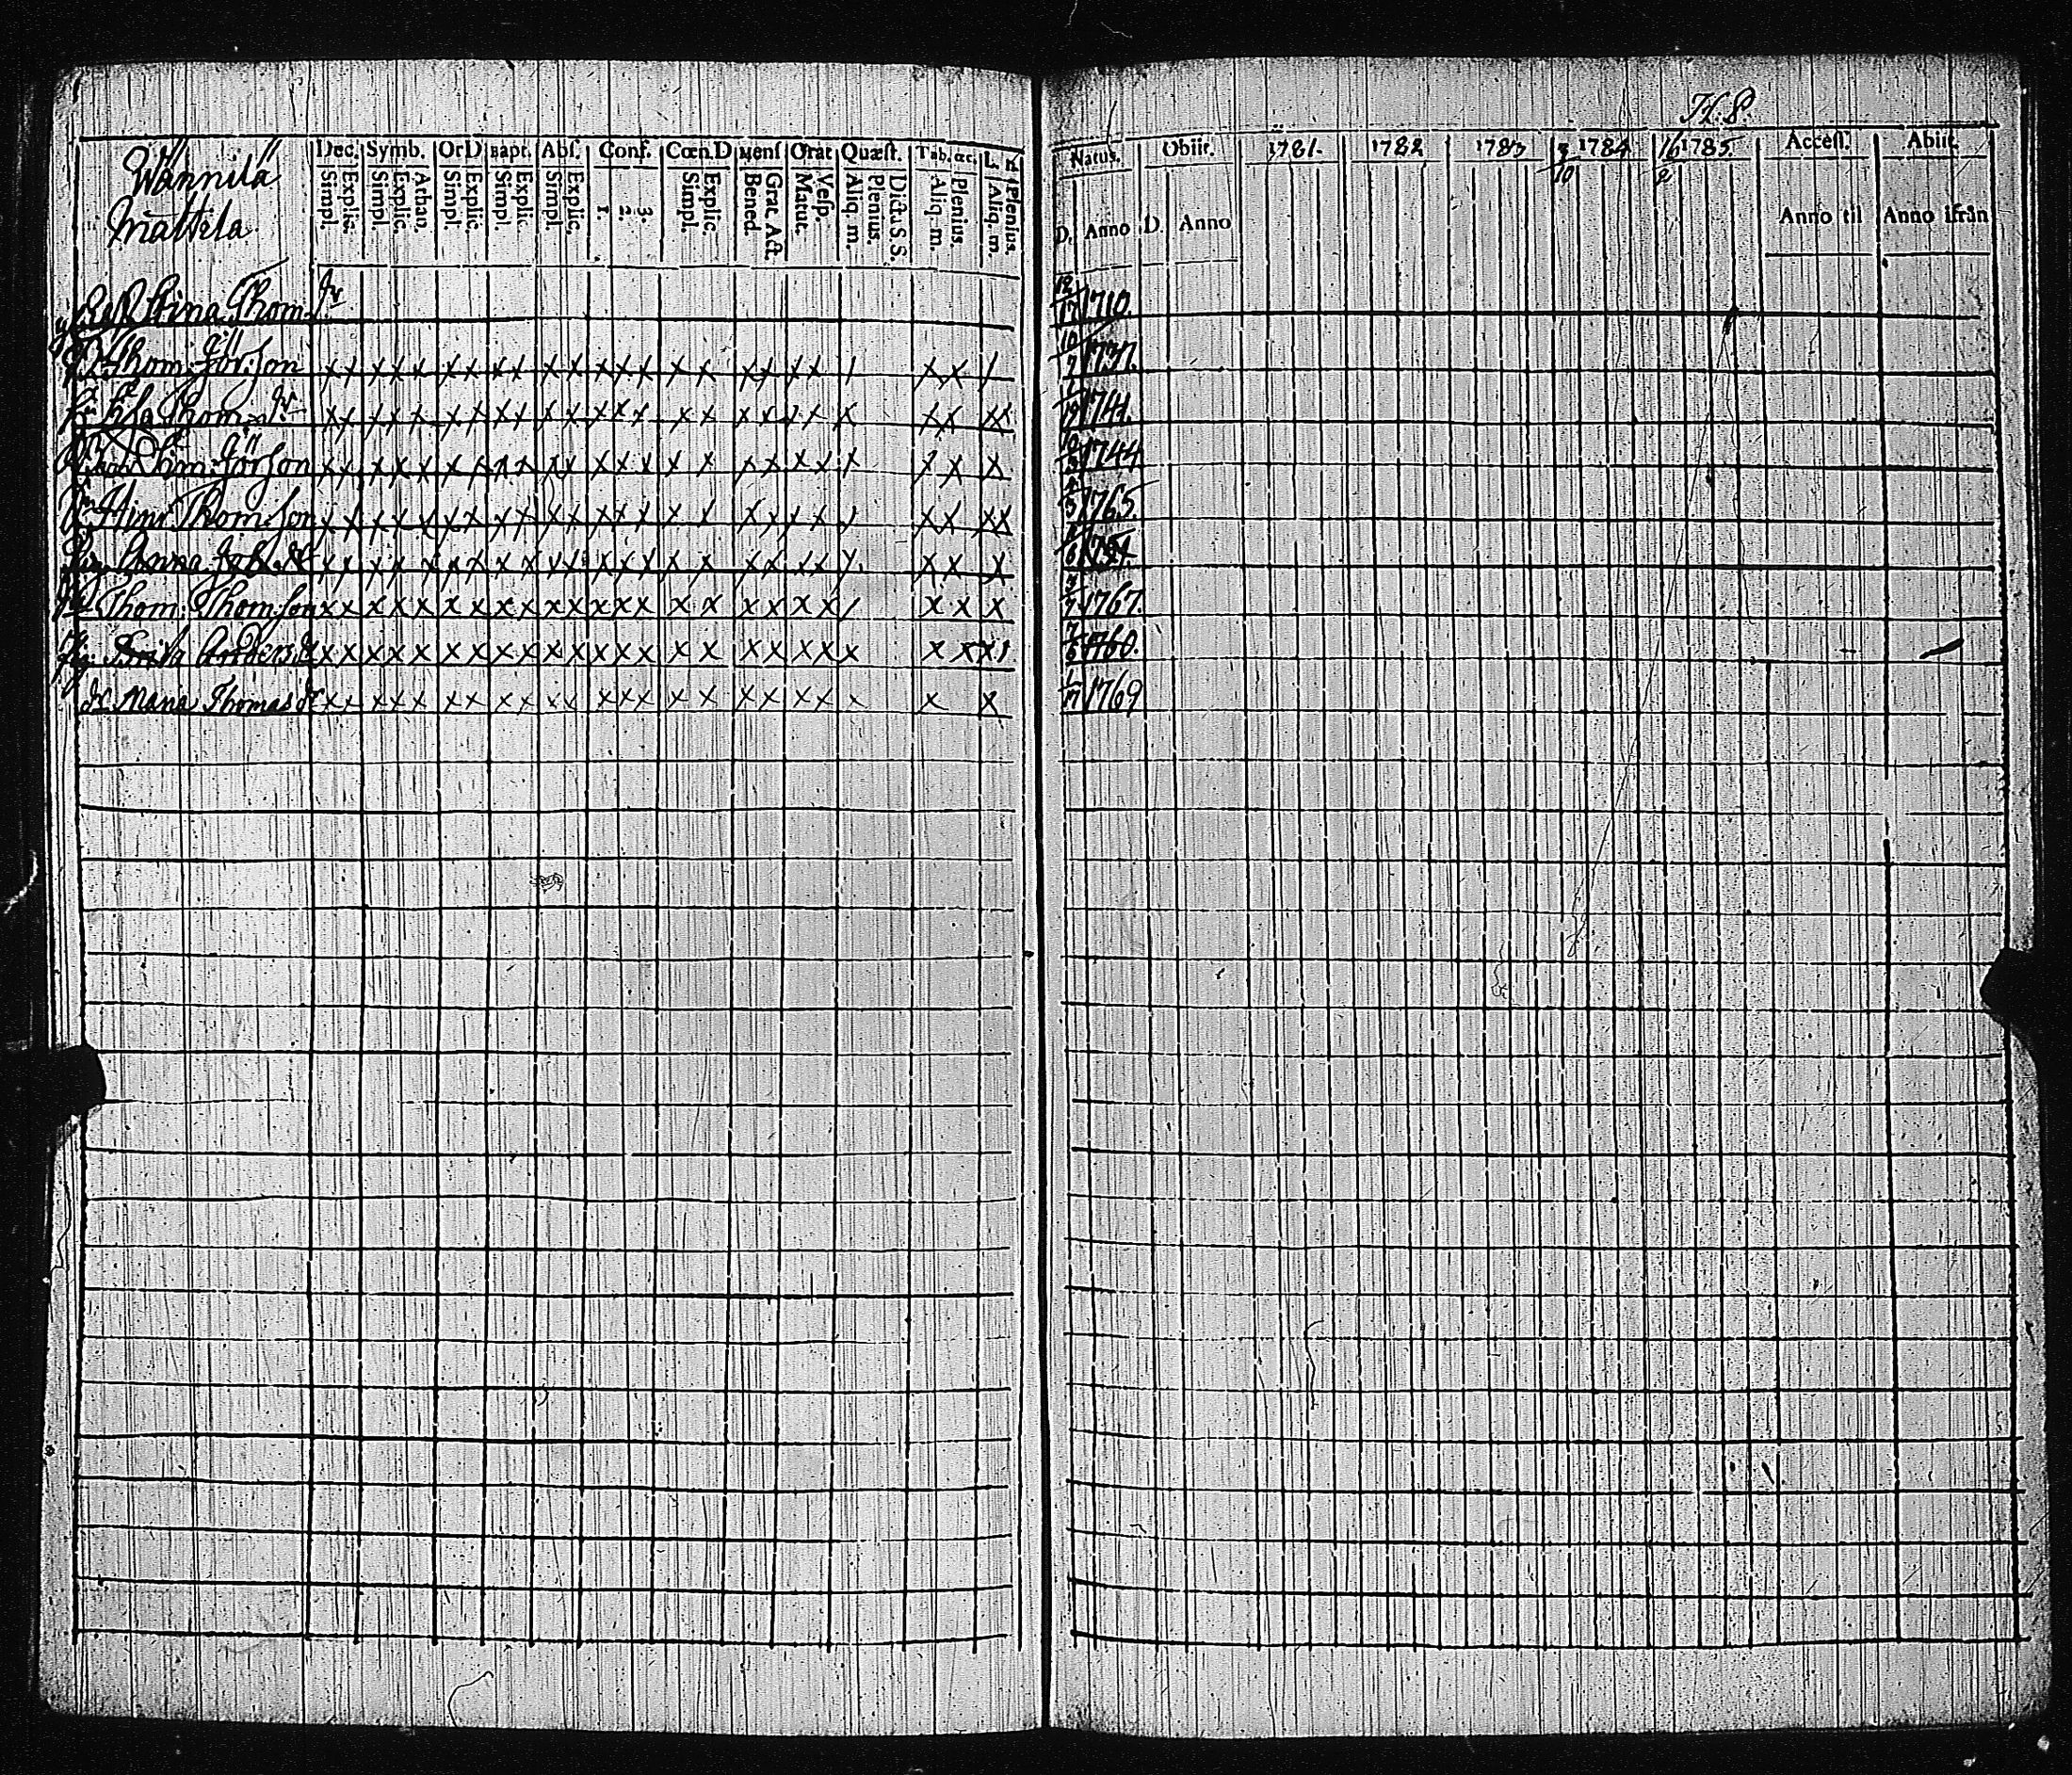 H. 8.
Wännilä
Mattila
Dec. Symb. Or D Bapt. Abs. Conf. Cœn. D Mens Orat Quæst. Tab. œc. L. n
Simpl. Explic. Simpl. Explic. Athan. Simpl. Explic. Simpl. Explic. Simpl. Explic. 1. 2. 3. Simpl. Explic. Bened. Grat. Act. Matut. Vesp. Aliq. m. Plenius. Dicta S S. Aliq. m. Plenius. Aliq. m. Plenius.
Natus. Obiit. 1781. 1782 1783 1784 1785. Access. Abiit.
D. Anno D. Anno Anno til Anno ifrån
Stina Thom. dr 12/17 1710.
Thom. Jörson x x x x x x x x x x x x x x x x x x x x / x x / 10/7 1737.
Thom. dr x x x x x x x x x x x x x x x x x x x x x x x x x 1/19 1741.
Sim. Jörson x x x x x x x x x x x x x x x x x x x x x x x x 1744
Hin: Thomson x x x x x x x x x x x x x x x x x x x x / x x x x 1765.
Anna x x x x x x x x x x x x x x x x x x x x x x x x
Thom. Thomson x x x x x x x x x x x x x x x x x x x x / x x x 1767.
Anders dr x x x x x x x x x x x x x x x x x x x x x x x x 1760.
dr Maria Thomas dr x x x x x x x x x x x x x x x x x x x x x x x 1/17 1769